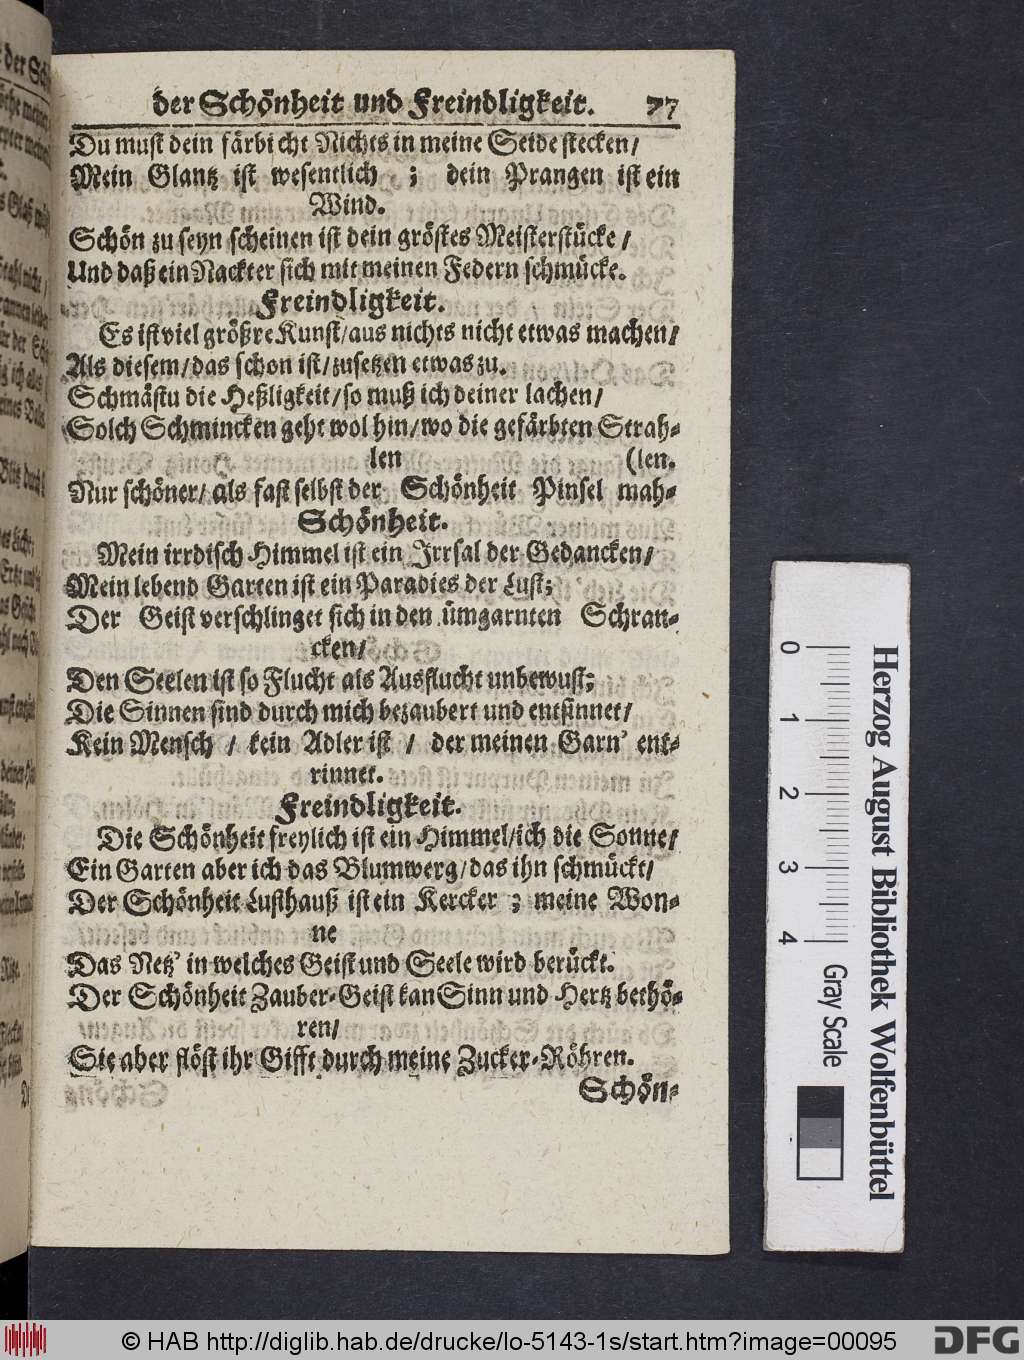 der Schönheit und Freindligkeit. 77
Du must dein färbicht Nichts in meine Seide stecken/
Mein Glantz ist wesentlich ; dein Prangen ist ein
Wind.
Schön zu seyn scheinen ist dein gröstes Meisterstücke /
Und daß ein Nackter sich mit meinen Federn schmücke.
Freindligkeit.
Es ist viel größre Kunst/aus nichts nicht etwas machen/
Als diesem/das schon ist/zusetzen etwas zu.
Schmästu die Heßligkeit/so muß ich deiner lachen/
Solch Schmincken geht wol hin/wo die gefärbten Strah-
len (len.
Nur schöner/ als fast selbst der Schönheit Pinsel mah-
Schönheit.
Mein irrdisch Himmel ist ein Irrsal der Gedancken/
Mein lebend Garten ist ein Paradies der Lust;
Der Geist verschlinget sich in den ümgarnten Schran-
cken/
Den Seelen ist so Flucht als Ausflucht unbewust;
Die Sinnen sind durch mich bezaubert und entsinnet/
Kein Mensch / kein Adler ist / der meinen Garn' ent-
rinnet.
Freindligkeit.
Die Schönheit freylich ist ein Himmel/ich die Sonne/
Ein Garten aber ich das Blumwerg/das ihn schmückt/
Der Schönheit Lusthauß ist ein Kercker ; meine Won-
ne
Das Netz' in welches Geist und Seele wird berückt.
Der Schönheit Zauber-Geist kan Sinn und Hertz bethö-
ren/
Sie aber flöst ihr Gifft durch meine Zucker-Röhren.
Schön-
Herzog August Bibliothek Wolfenbüttel
0 1 2 3 4
Gray Scale
© HAB http://diglib.hab.de/drucke/lo-5143-1s/start.htm?image=00095
DFG